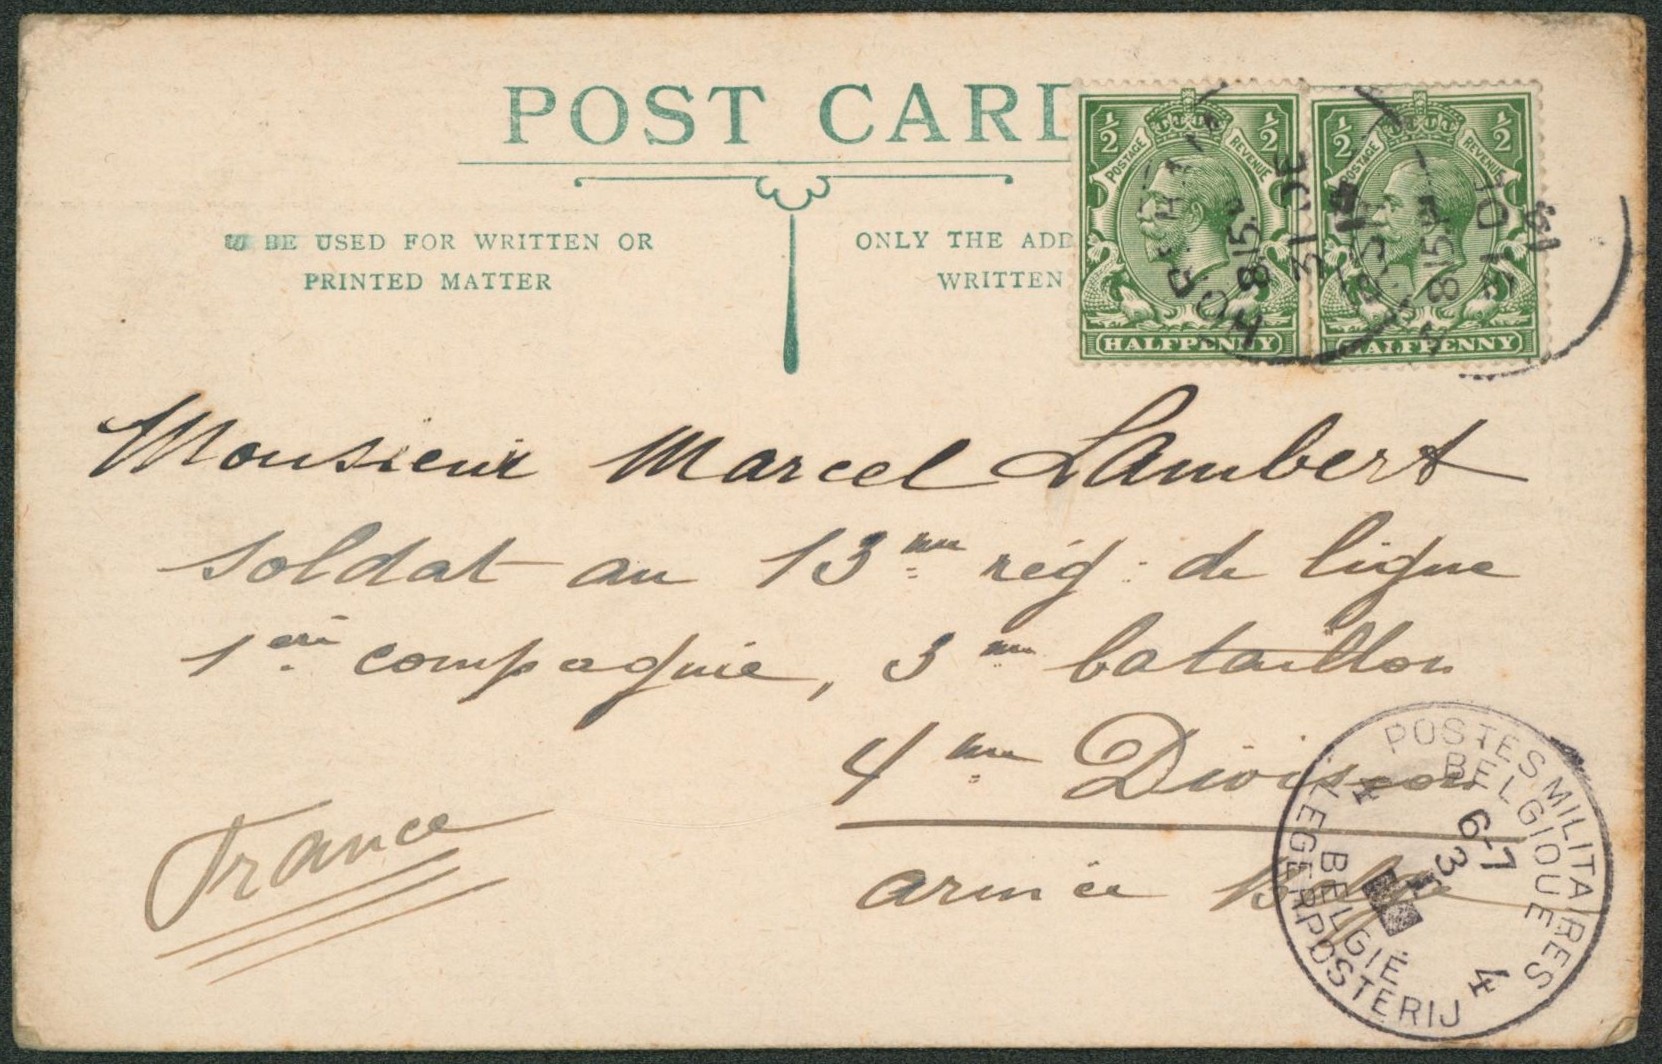 POST CARD
TO BE USED FOR WRITTEN OR
PRINTED MATTER
ONLY THE ADD
WRITTEN
½ ½
POSTAGE REVENUE
HALFPENNY
½ ½
POSTAGE REVENUE
HALFPENNY
8.15 PM
31 DE
14
8.15 PM
31 DE
14
Monsieur Marcel Lambert
soldat au 13me rég: de ligne
1ere compagnie, 3me bataillon
4me Division
armée Belge
France
POSTES MILITAIRES
BELGIQUE
4 4
6-7
3 I
BELGIË
LEGERPOSTERIJ